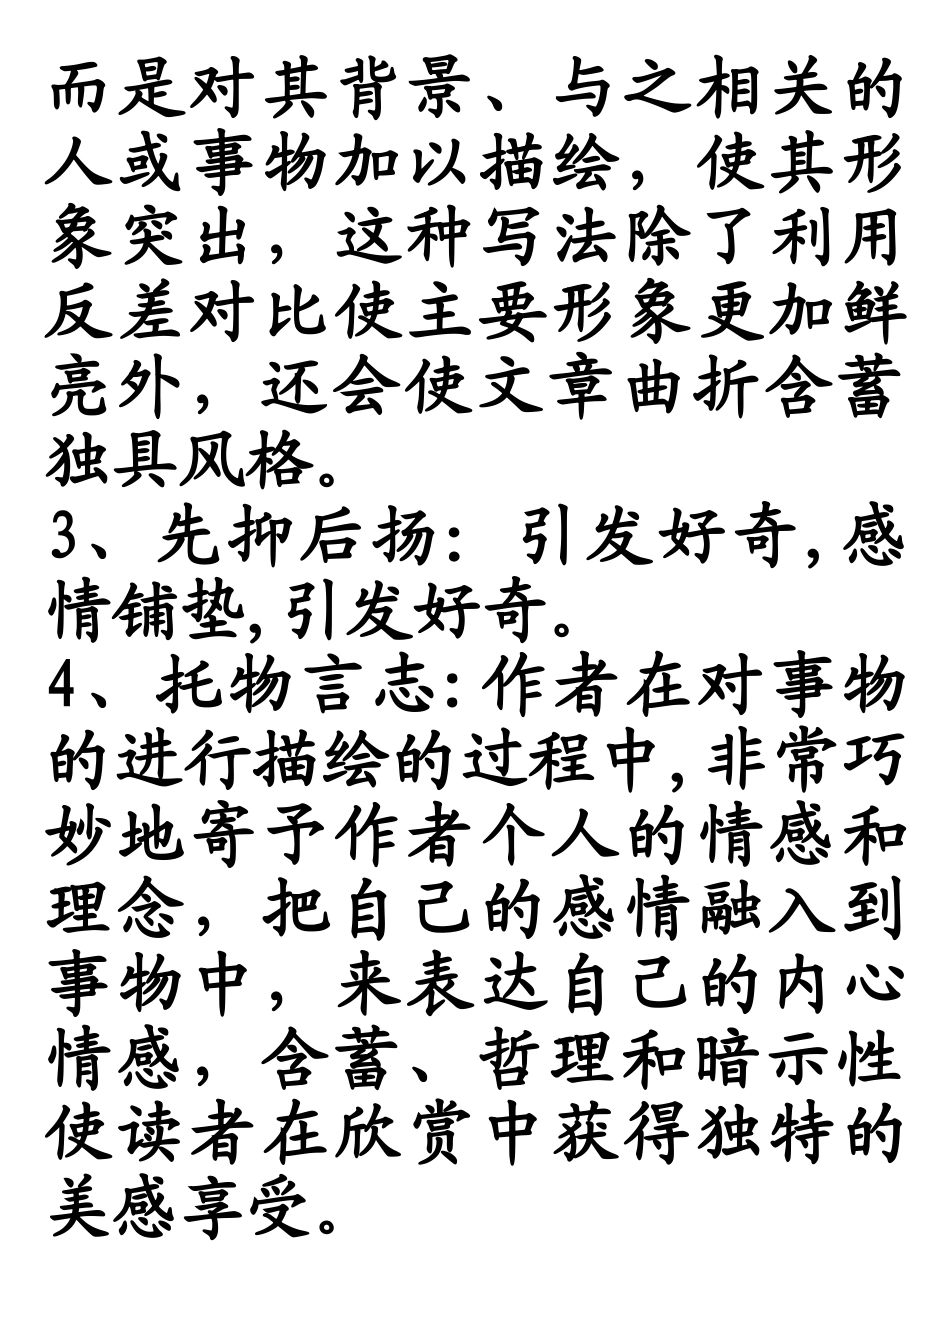 而是对其背景、与之相关的
人或事物加以描绘，使其形
象突出，这种写法除了利用
反差对比使主要形象更加鲜
亮外，还会使文章曲折含蓄
独具风格。
3、先抑后扬：引发好奇,感
情铺垫,引发好奇。
4、托物言志:作者在对事物
的进行描绘的过程中,非常巧
妙地寄予作者个人的情感和
理念，把自己的感情融入到
事物中，来表达自己的内心
情感，含蓄、哲理和暗示性
使读者在欣赏中获得独特的
美感享受。